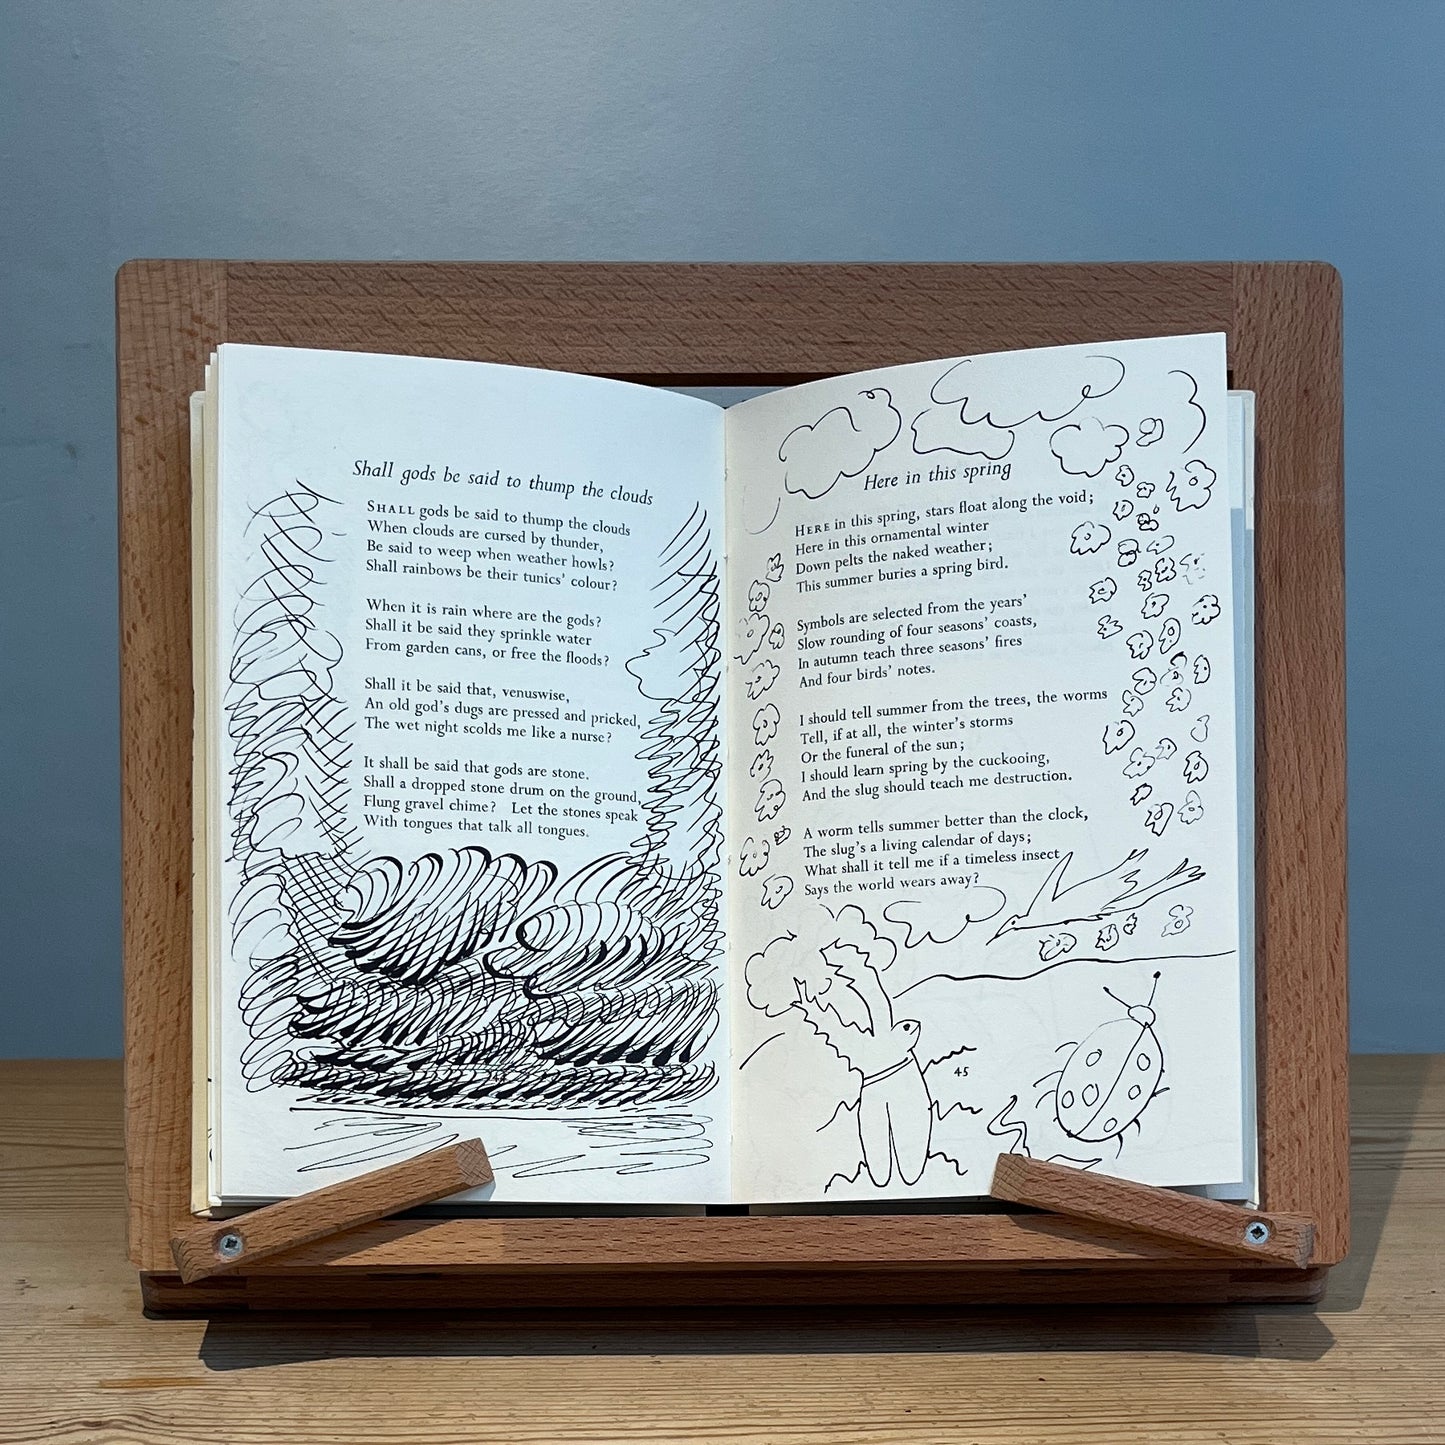 Shall gods be said to thump the clouds
SHALL gods be said to thump the clouds
When clouds are cursed by thunder,
Be said to weep when weather howls?
Shall rainbows be their tunics' colour?
When it is rain where are the gods?
Shall it be said they sprinkle water
From garden cans, or free the floods?
Shall it be said that, venuswise,
An old god's dugs are pressed and pricked,
The wet night scolds me like a nurse?
It shall be said that gods are stone.
Shall a dropped stone drum on the ground,
Flung gravel chime? Let the stones speak
With tongues that talk all tongues.
Here in this spring
HERE in this spring, stars float along the void;
Here in this ornamental winter
Down pelts the naked weather;
This summer buries a spring bird.
Symbols are selected from the years'
Slow rounding of four seasons' coasts,
In autumn teach three seasons' fires
And four birds' notes.
I should tell summer from the trees, the worms
Tell, if at all, the winter's storms
Or the funeral of the sun;
I should learn spring by the cuckooing,
And the slug should teach me destruction.
A worm tells summer better than the clock,
The slug's a living calendar of days;
What shall it tell me if a timeless insect
Says the world wears away?
45